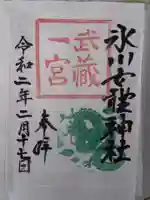 氷川女體神社
武蔵
一宮
参拝
令和二年二月十七日